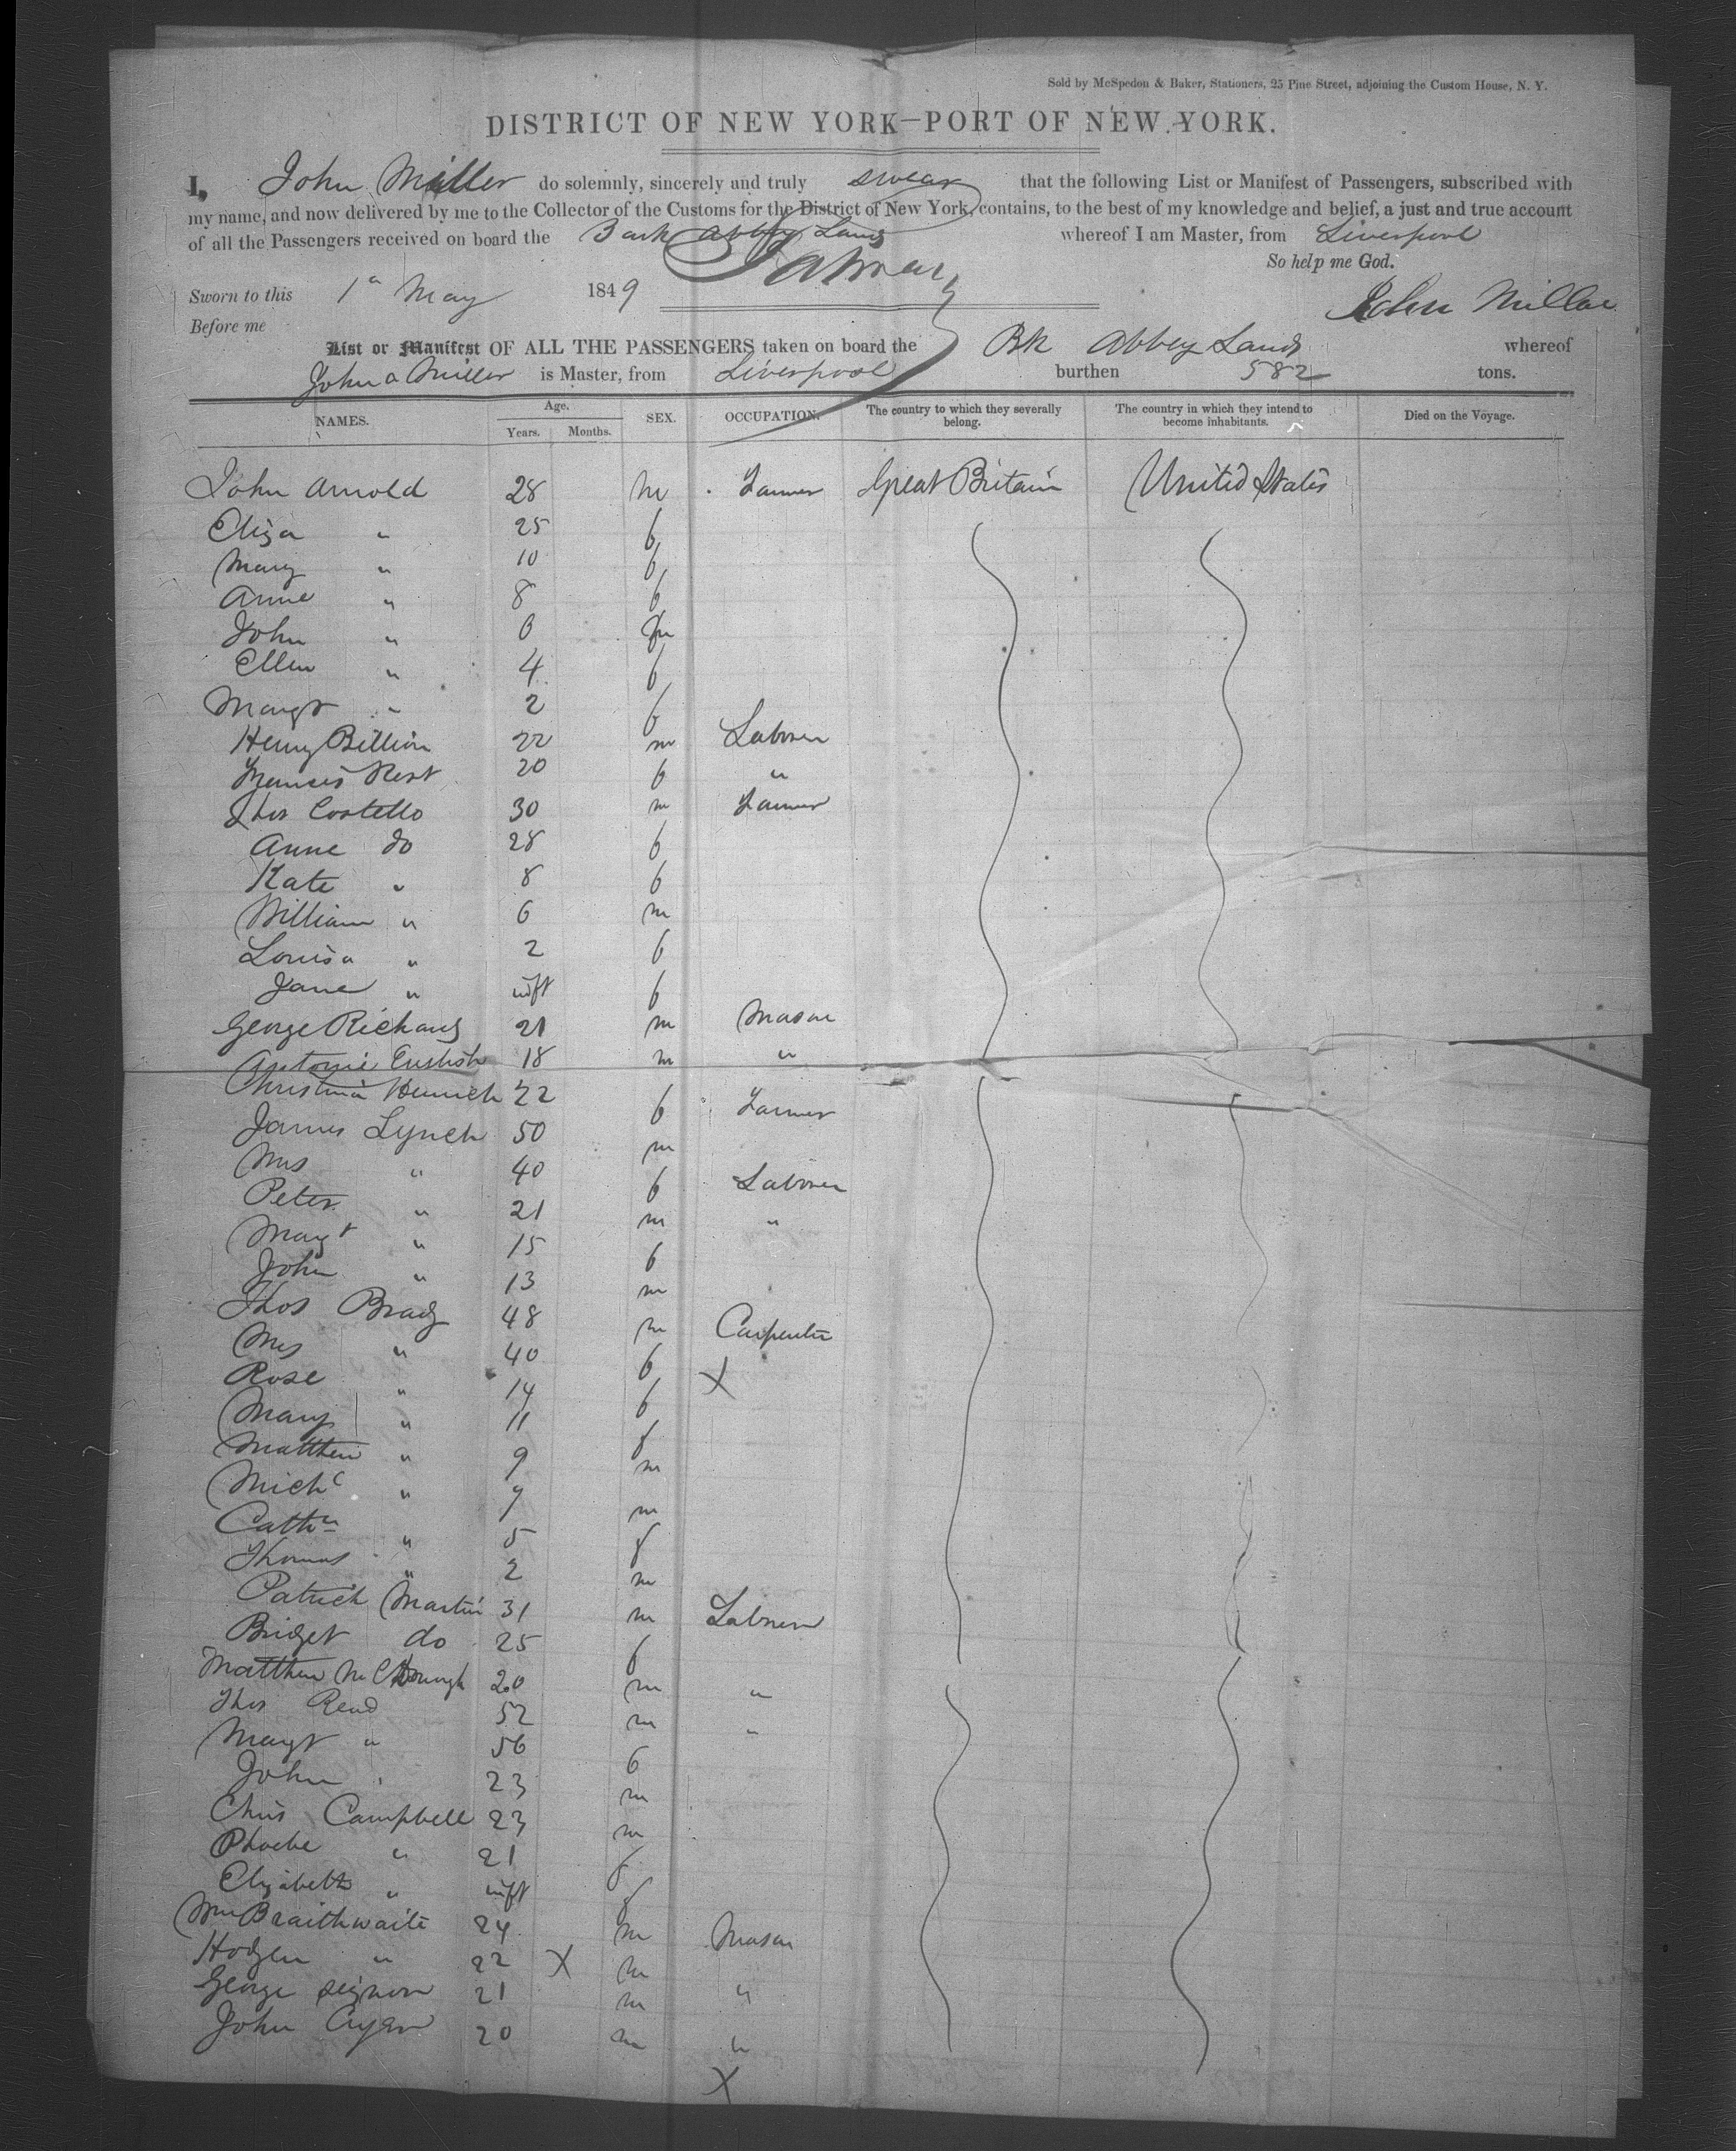 Sold by McSpedon & Baker, Stationers, 25 Pine Street, adjoining the Custom House, N. Y.
DISTRICT OF NEW YORK—PORT OF NEW YORK.
I, John Miller do solemnly, sincerely and truly swear that the following List or Manifest of Passengers, subscribed with
my name, and now delivered by me to the Collector of the Customs for the District of New York, contains, to the best of my knowledge and belief, a just and true account
of all the Passengers received on board the Bark Abbey Lands whereof I am Master, from Liverpool
So help me God.
Sworn to this 1st May 1849
John Miller
Before me
List or Manifest OF ALL THE PASSENGERS taken on board the Bk Abbey Lands whereof
John a Miller is Master, from Liverpool burthen 582 tons.
NAMES. Age. Years. Months. SEX. OCCUPATION. The country to which they severally belong. The country in which they intend to become inhabitants. Died on the Voyage.
John Arnold 28 m Farmer Great Britain United States
Eliza " 25 f
Mary " 10 f
Anne " 8 f
John " 6 m
Ellen " 4 f
Margt " 2 f
Henry Billion 22 m Laborer
Frances 20 f "
Thos Costello 30 m Farmer
Anne do 28 f
Kate " 8 f
William " 6 m
Louisa " 2 f
Jane " inft f
George Richards 21 m Mason
18 m "
Christina 22 f Farmer
James Lynch 50 m
Mrs " 40 f Laborer
Peter " 21 m "
Margt " 15 f
John " 13 m
Thos Brady 48 m Carpenter
Mrs " 40 f X
Rose " 14 f
Mary " 11 f
Matthew " 9 m
Michl " 7 m
Cathn " 5 f
Thomas " 2 m
Patrick Martin 31 m Laborer
Bridget do 25 f
Matthew 20 m "
Thos Read 52 m "
Margt " 56 f
John " 23 m
Chris Campbell 23 m
Phoebe " 21 f
Elizabeth " inft f
Wm Braithwaite 24 m Mason
Hodgen " 22 X m
George 21 m "
John 20 m "
X